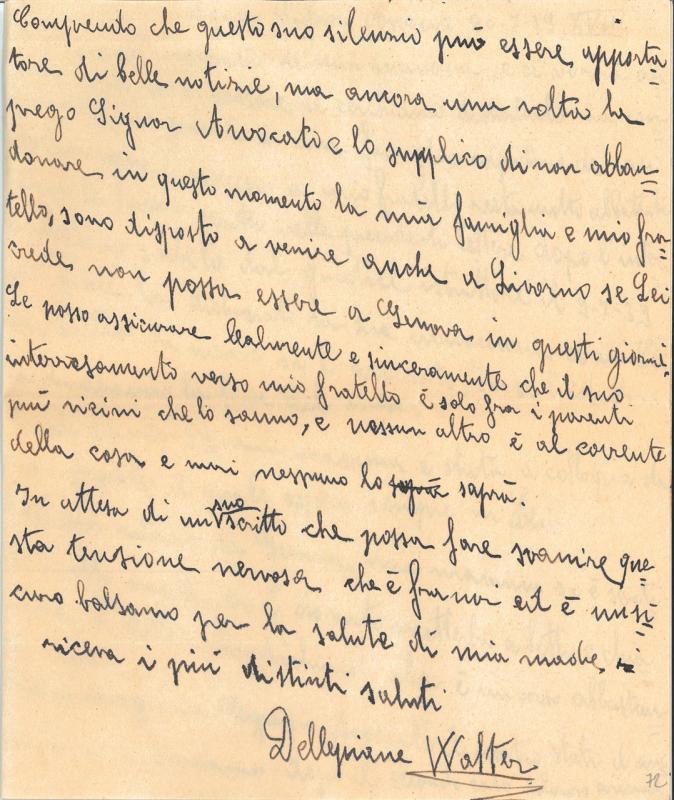 Comprendo che questo suo silenzio può essere apporta=
tore di belle notizie, ma ancora una volta la
prego Signor Avvocato e lo supplico di non abban=
donare in questo momento la mia famiglia e mio fra=
tello, sono disposto a venire anche a Livorno se Lei
crede non possa essere a Genova in questi giorni.
Le posso assicurare lealmente e sinceramente che il suo
interessamento verso mio fratello è solo fra i parenti
più vicini che lo sanno, e nessun altro è al corrente
della cosa e mai nessuno lo saprà saprà.
In attesa di un suo scritto che possa fare svanire que=
sta tensione nervosa che è fra noi ed è un si=
curo balsamo per la salute di mia madre,
riceva i più distinti saluti
Dellepiane Walter
72